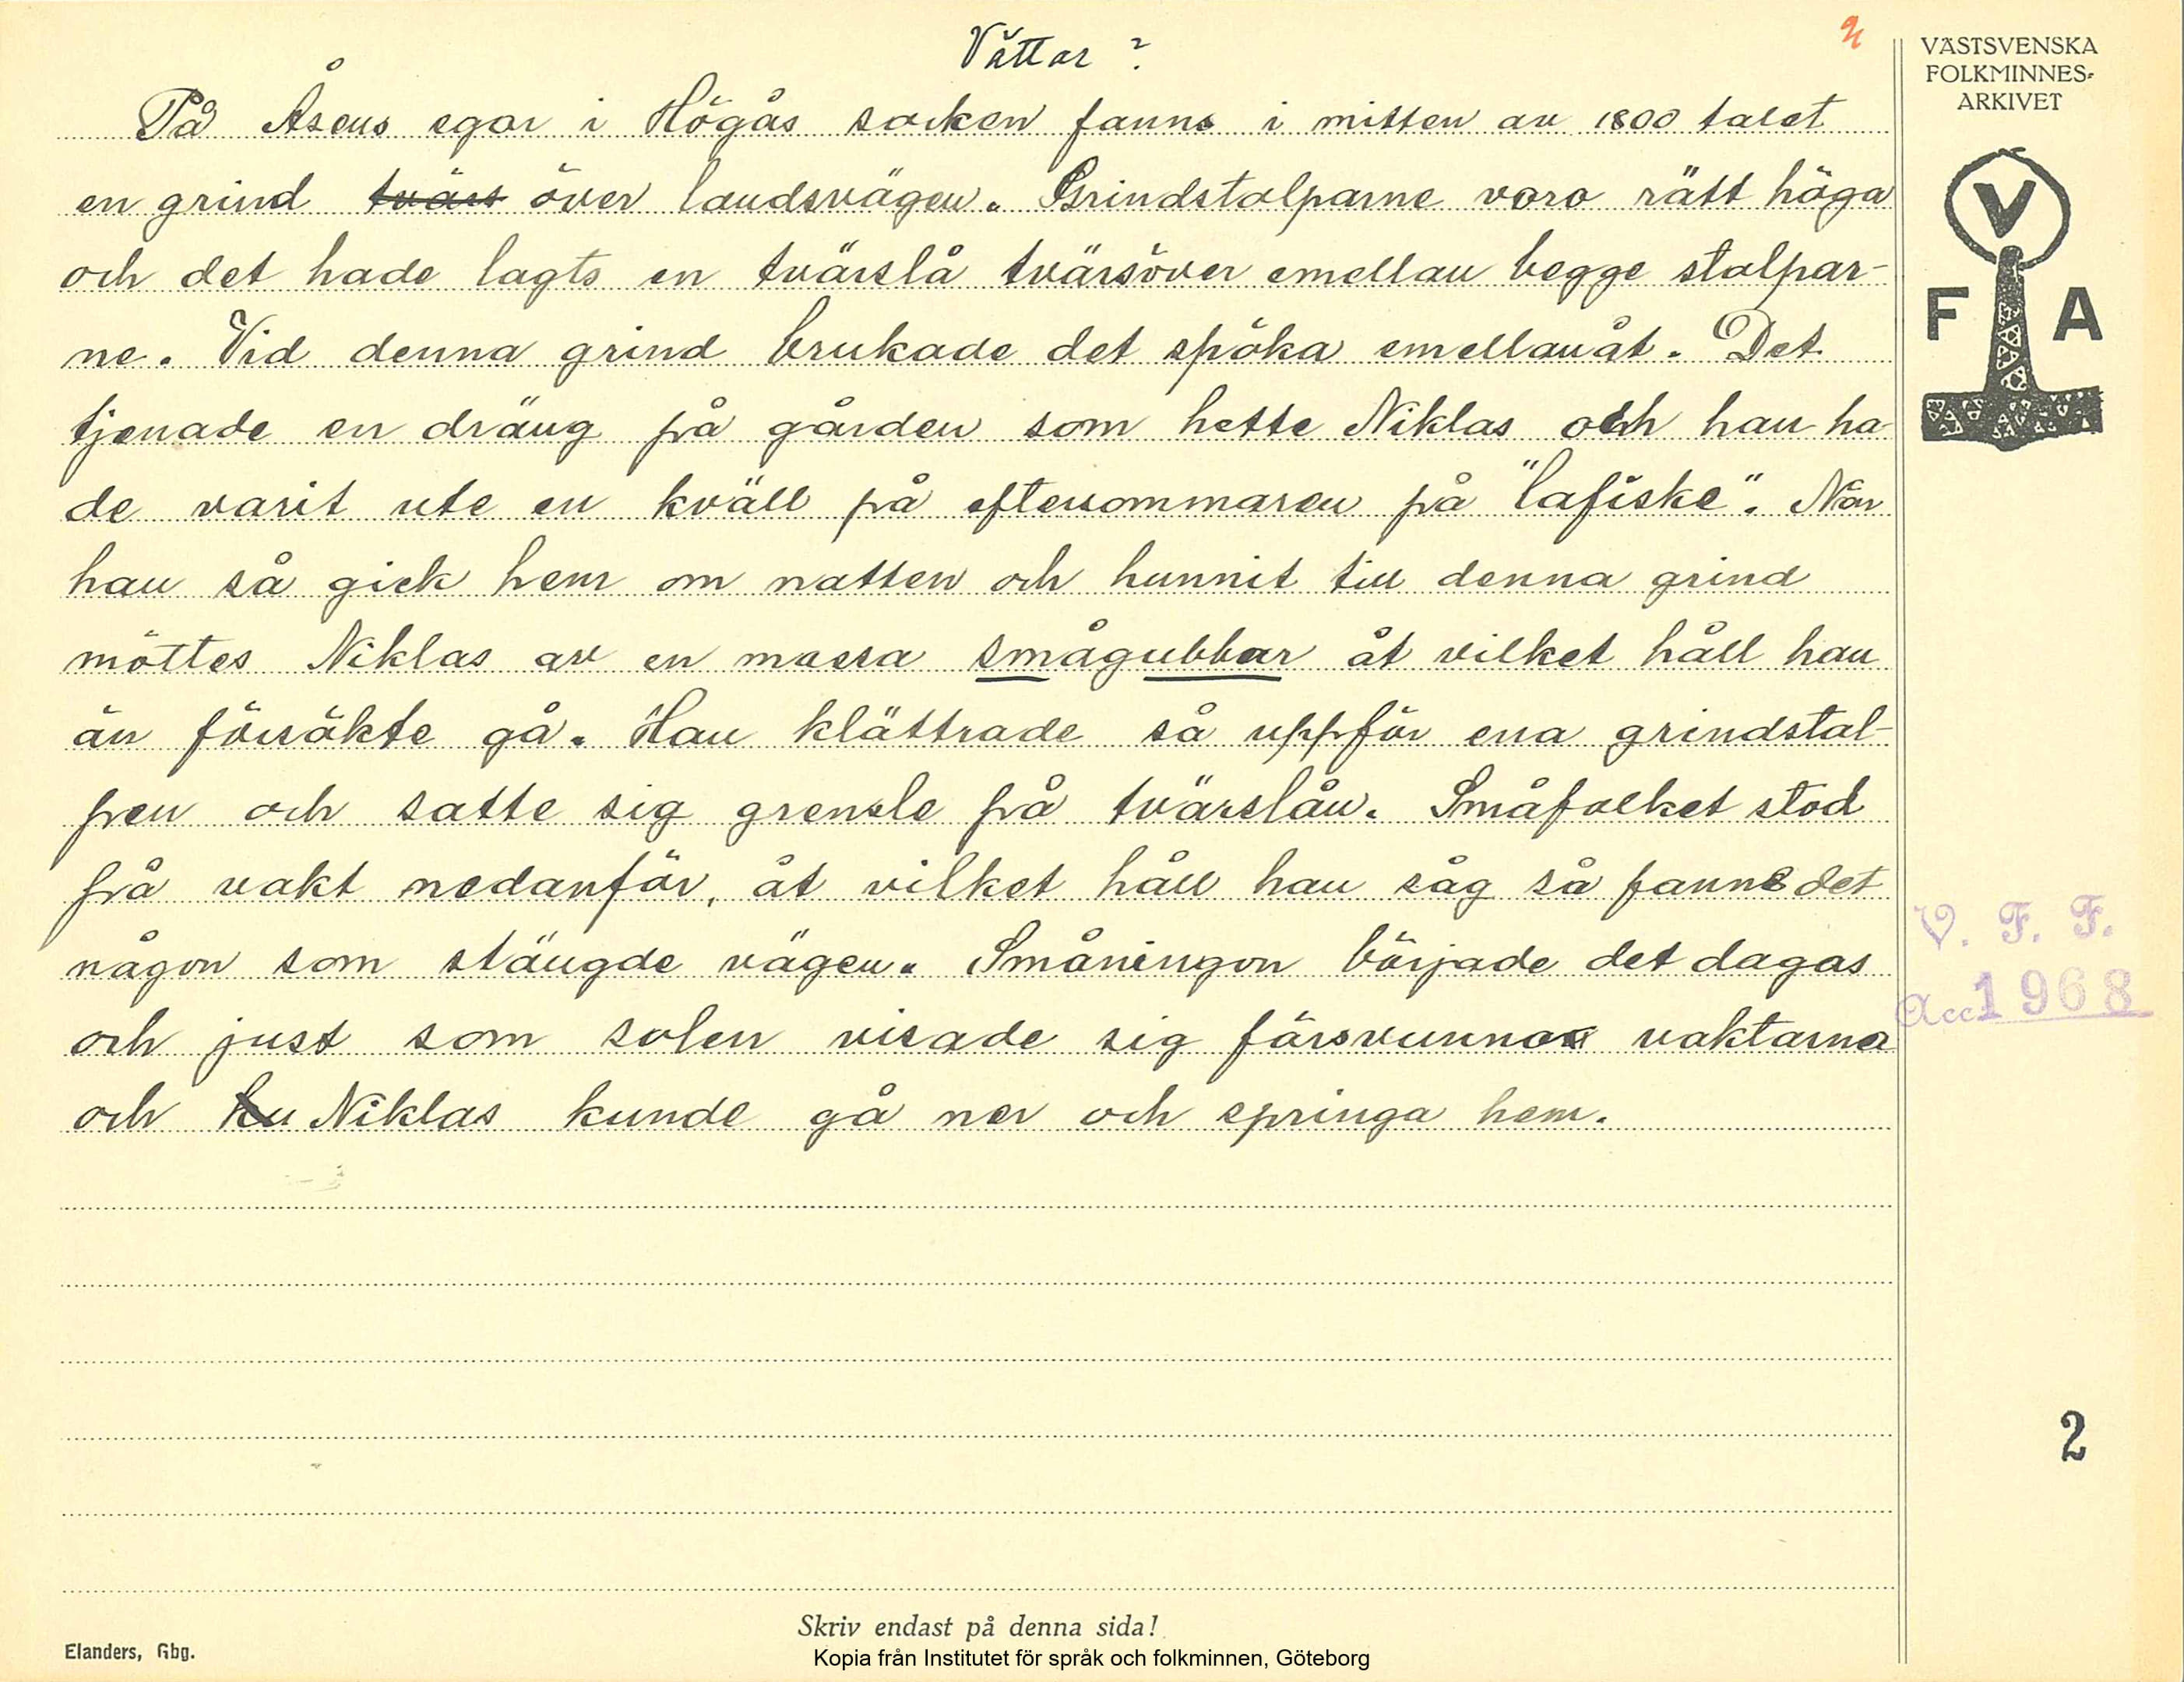 Vättar?
VÄSTSVENSKA
FOLKMINNES-
ARKIVET
V
F A
På Åsens egor i Högås socken fanns i mitten av 1800 talet
en grind tvärs över landsvägen. Grindstolparne voro rätt höga
och det hade lagts en tvärslå tvärsöver emellan begge stolpar-
ne. Vid denna grind brukade det spöka emellanåt. Det
tjenade en dräng på gården som hette Niklas och han ha-
de varit ute en kväll på eftersommaren på "lafiske". När
han så gick hem om natten och hunnit till denna grind
möttes Niklas av en massa smågubbar åt vilket håll han
än försökte gå. Han klättrade så uppför ena grindstol-
pen och satte sig grensle på tvärslån. Småfolket stod
på vakt nedanför, åt vilket håll han såg så fanns det
någon som stängde vägen. Småningon började det dagas
och just som solen visade sig försvunno vaktarna
och ku Niklas kunde gå ner och springa hem.
V. F. F.
Acc 1968
2
Skriv endast på denna sida!
Elanders, Gbg.
Kopia från Institutet för språk och folkminnen, Göteborg